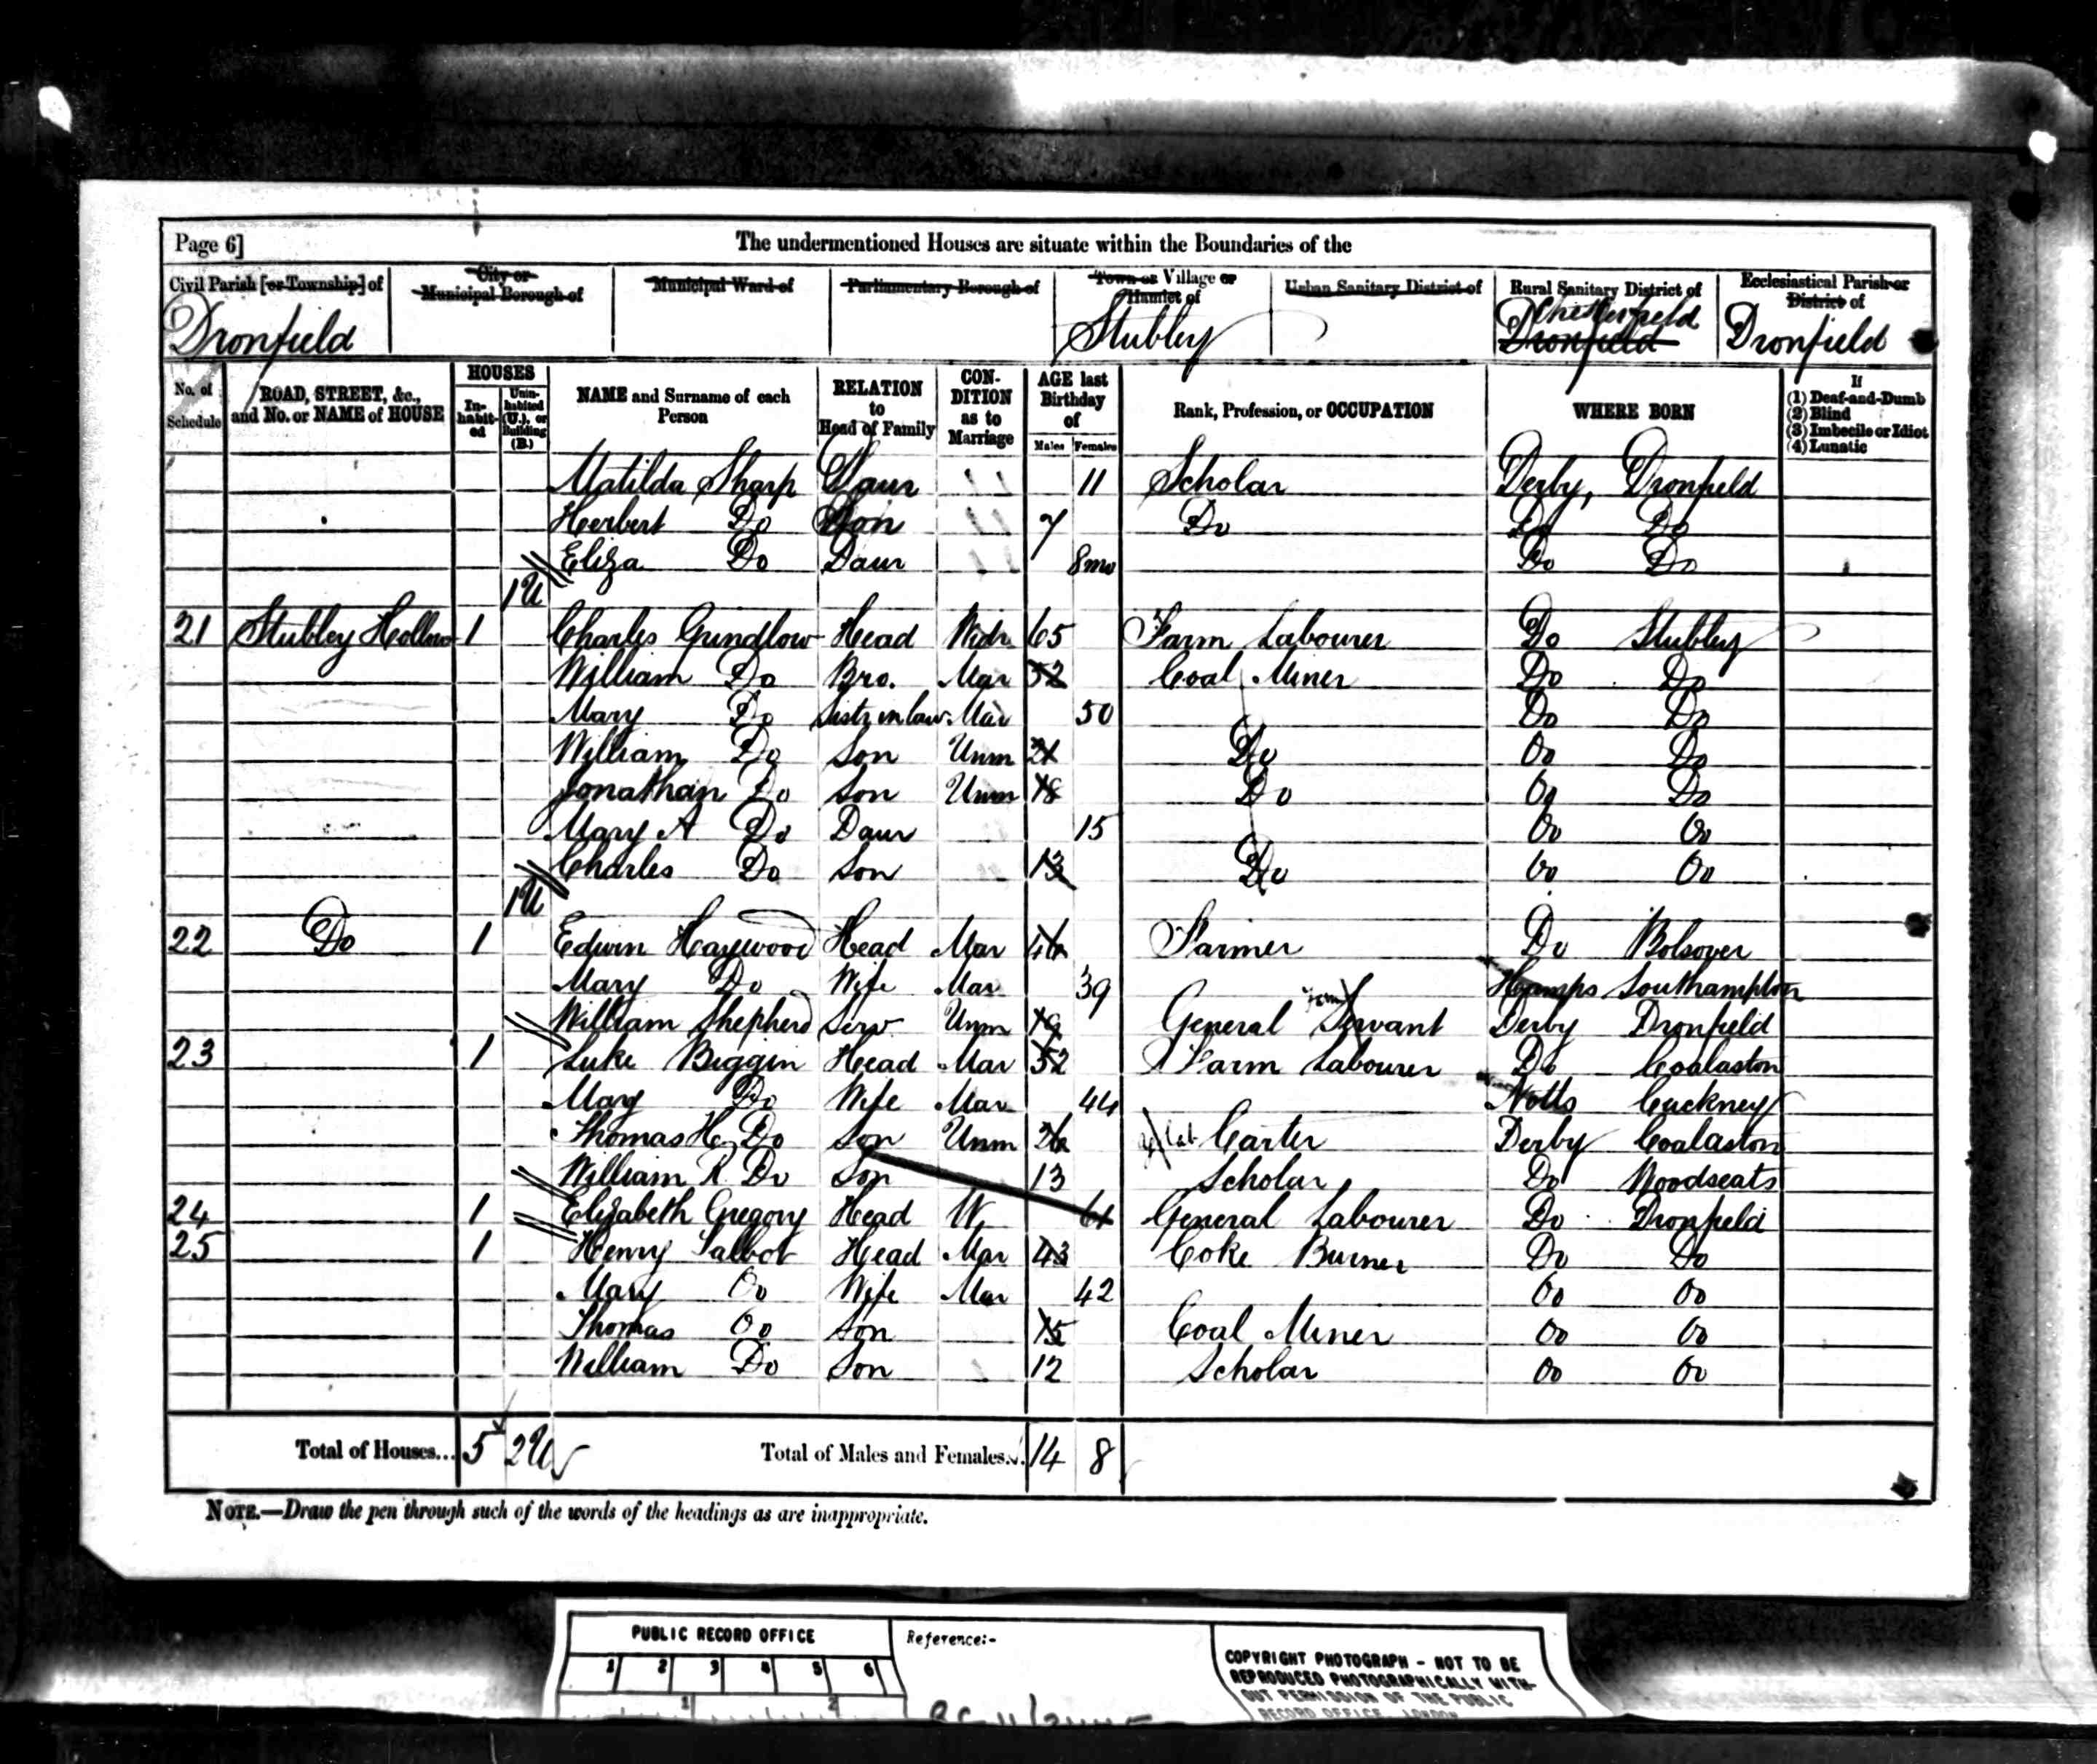 Page 6] The undermentioned Houses are situate within the Boundaries of the
Civil Parish [or Township] of City or Municipal Borough of Municipal Ward of Parliamentary Borough of Town or Village or Hamlet of Urban Sanitary District of Rural Sanitary District of Ecclesiastical Parish or District of
Dronfield Stubley Chesterfield Dronfield Dronfield
No. of Schedule ROAD, STREET, &c., and No. or NAME of HOUSE HOUSES Inhabited Uninhabited (U.), or Building (B.) NAME and Surname of each Person RELATION to Head of Family CONDITION as to Marriage AGE last Birthday of Males Females Rank, Profession, or OCCUPATION WHERE BORN If (1) Deaf-and-Dumb (2) Blind (3) Imbecile or Idiot (4) Lunatic
Matilda Sharp Daur 11 Scholar Derby, Dronfield
Herbert Do Son 7 Do Do Do
Eliza Do Daur 8mo Do Do
1U
21 Stubley Hollow 1 Charles Gundlow Head Widr 65 Farm Labourer Do Stubley
William Do Bro. Mar 52 Coal Miner Do Do
Mary Do Sistr in law Mar 50 Do Do
William Do Son Unm 21 Do Do Do
Jonathan Do Son Unm 18 Do Do Do
Mary A Do Daur 15 Do Do
Charles Do Son 13 Do Do Do
1U
22 Do 1 Edwin Haywood Head Mar Farmer Do Bolsover
Mary Do Wife Mar 39 Hamps Southampton
William Shepherd Serv Unm 19 General Servant Derby Dronfield
23 1 Luke Biggin Head Mar 52 Farm Labourer Do Coalaston
Mary Do Wife Mar 44 Notts Cuckney
Thomas H. Do Son Unm Carter Derby Coalaston
William R. Do Son 13 Scholar Do Woodseats
24 1 Elizabeth Gregory Head W. 61 General Labourer Do Dronfield
25 1 Henry Talbot Head Mar 43 Coke Burner Do Do
Mary Do Wife Mar 42 Do Do
Thomas Do Son 15 Coal Miner Do Do
William Do Son 12 Scholar Do Do
Total of Houses... 5 2U Total of Males and Females... 14 8
NOTE.—Draw the pen through such of the words of the headings as are inappropriate.
PUBLIC RECORD OFFICE Reference:- COPYRIGHT PHOTOGRAPH - NOT TO BE
1 2 3 4 5 6 REPRODUCED PHOTOGRAPHICALLY WITH-
1 2 OUT PERMISSION OF THE PUBLIC
RECORD OFFICE, LONDON